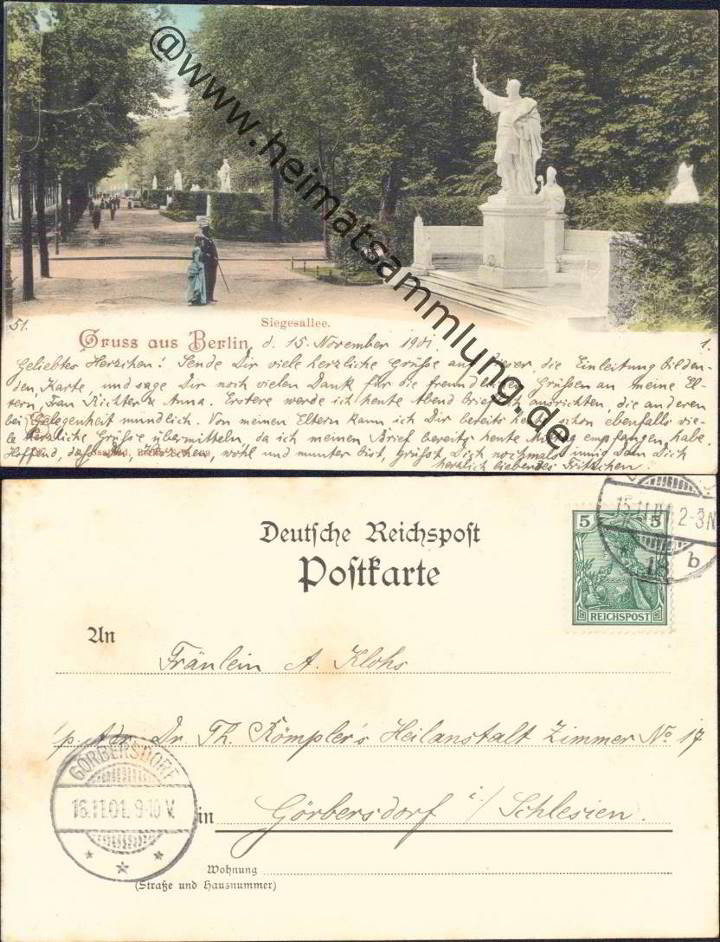 @www.heimatsammlung.de
Siegesallee.
51.
Gruss aus Berlin, d. 15. November 1901. 1.
Geliebtes Herzchen! Sende Dir viele herzliche Grüße auf dieser, die Einleitung bilden-
den Karte, und sage Dir noch vielen Dank für die freundlichen Grüßen an meine El-
tern, Frau Richter & Anna. Erstere werde ich heute Abend brieflich ausrichten, die anderen
bei Gelegenheit mündlich. Von meinen Eltern kann ich Dir bereits heute schon ebenfalls vie-
le herzliche Grüße übermitteln, da ich meinen Brief bereits heute Mittag empfangen habe.
Hoffend, daß Du, Herzchen, wohl und munter bist, grüßt Dich nochmals innig Dein Dich
herzlich liebendes Fritzchen.
Deutsche Reichspost
Postkarte
5 5
REICHSPOST
15.11.01 2-3N
b
An Fräulein A. Klohs
p. Adr. Dr. Th. Römpler's Heilanstalt Zimmer No. 17
in Görbersdorf i/Schlesien.
GÖRBERSDORF
16.11.01. 9-10 V.
Wohnung
(Straße und Hausnummer)